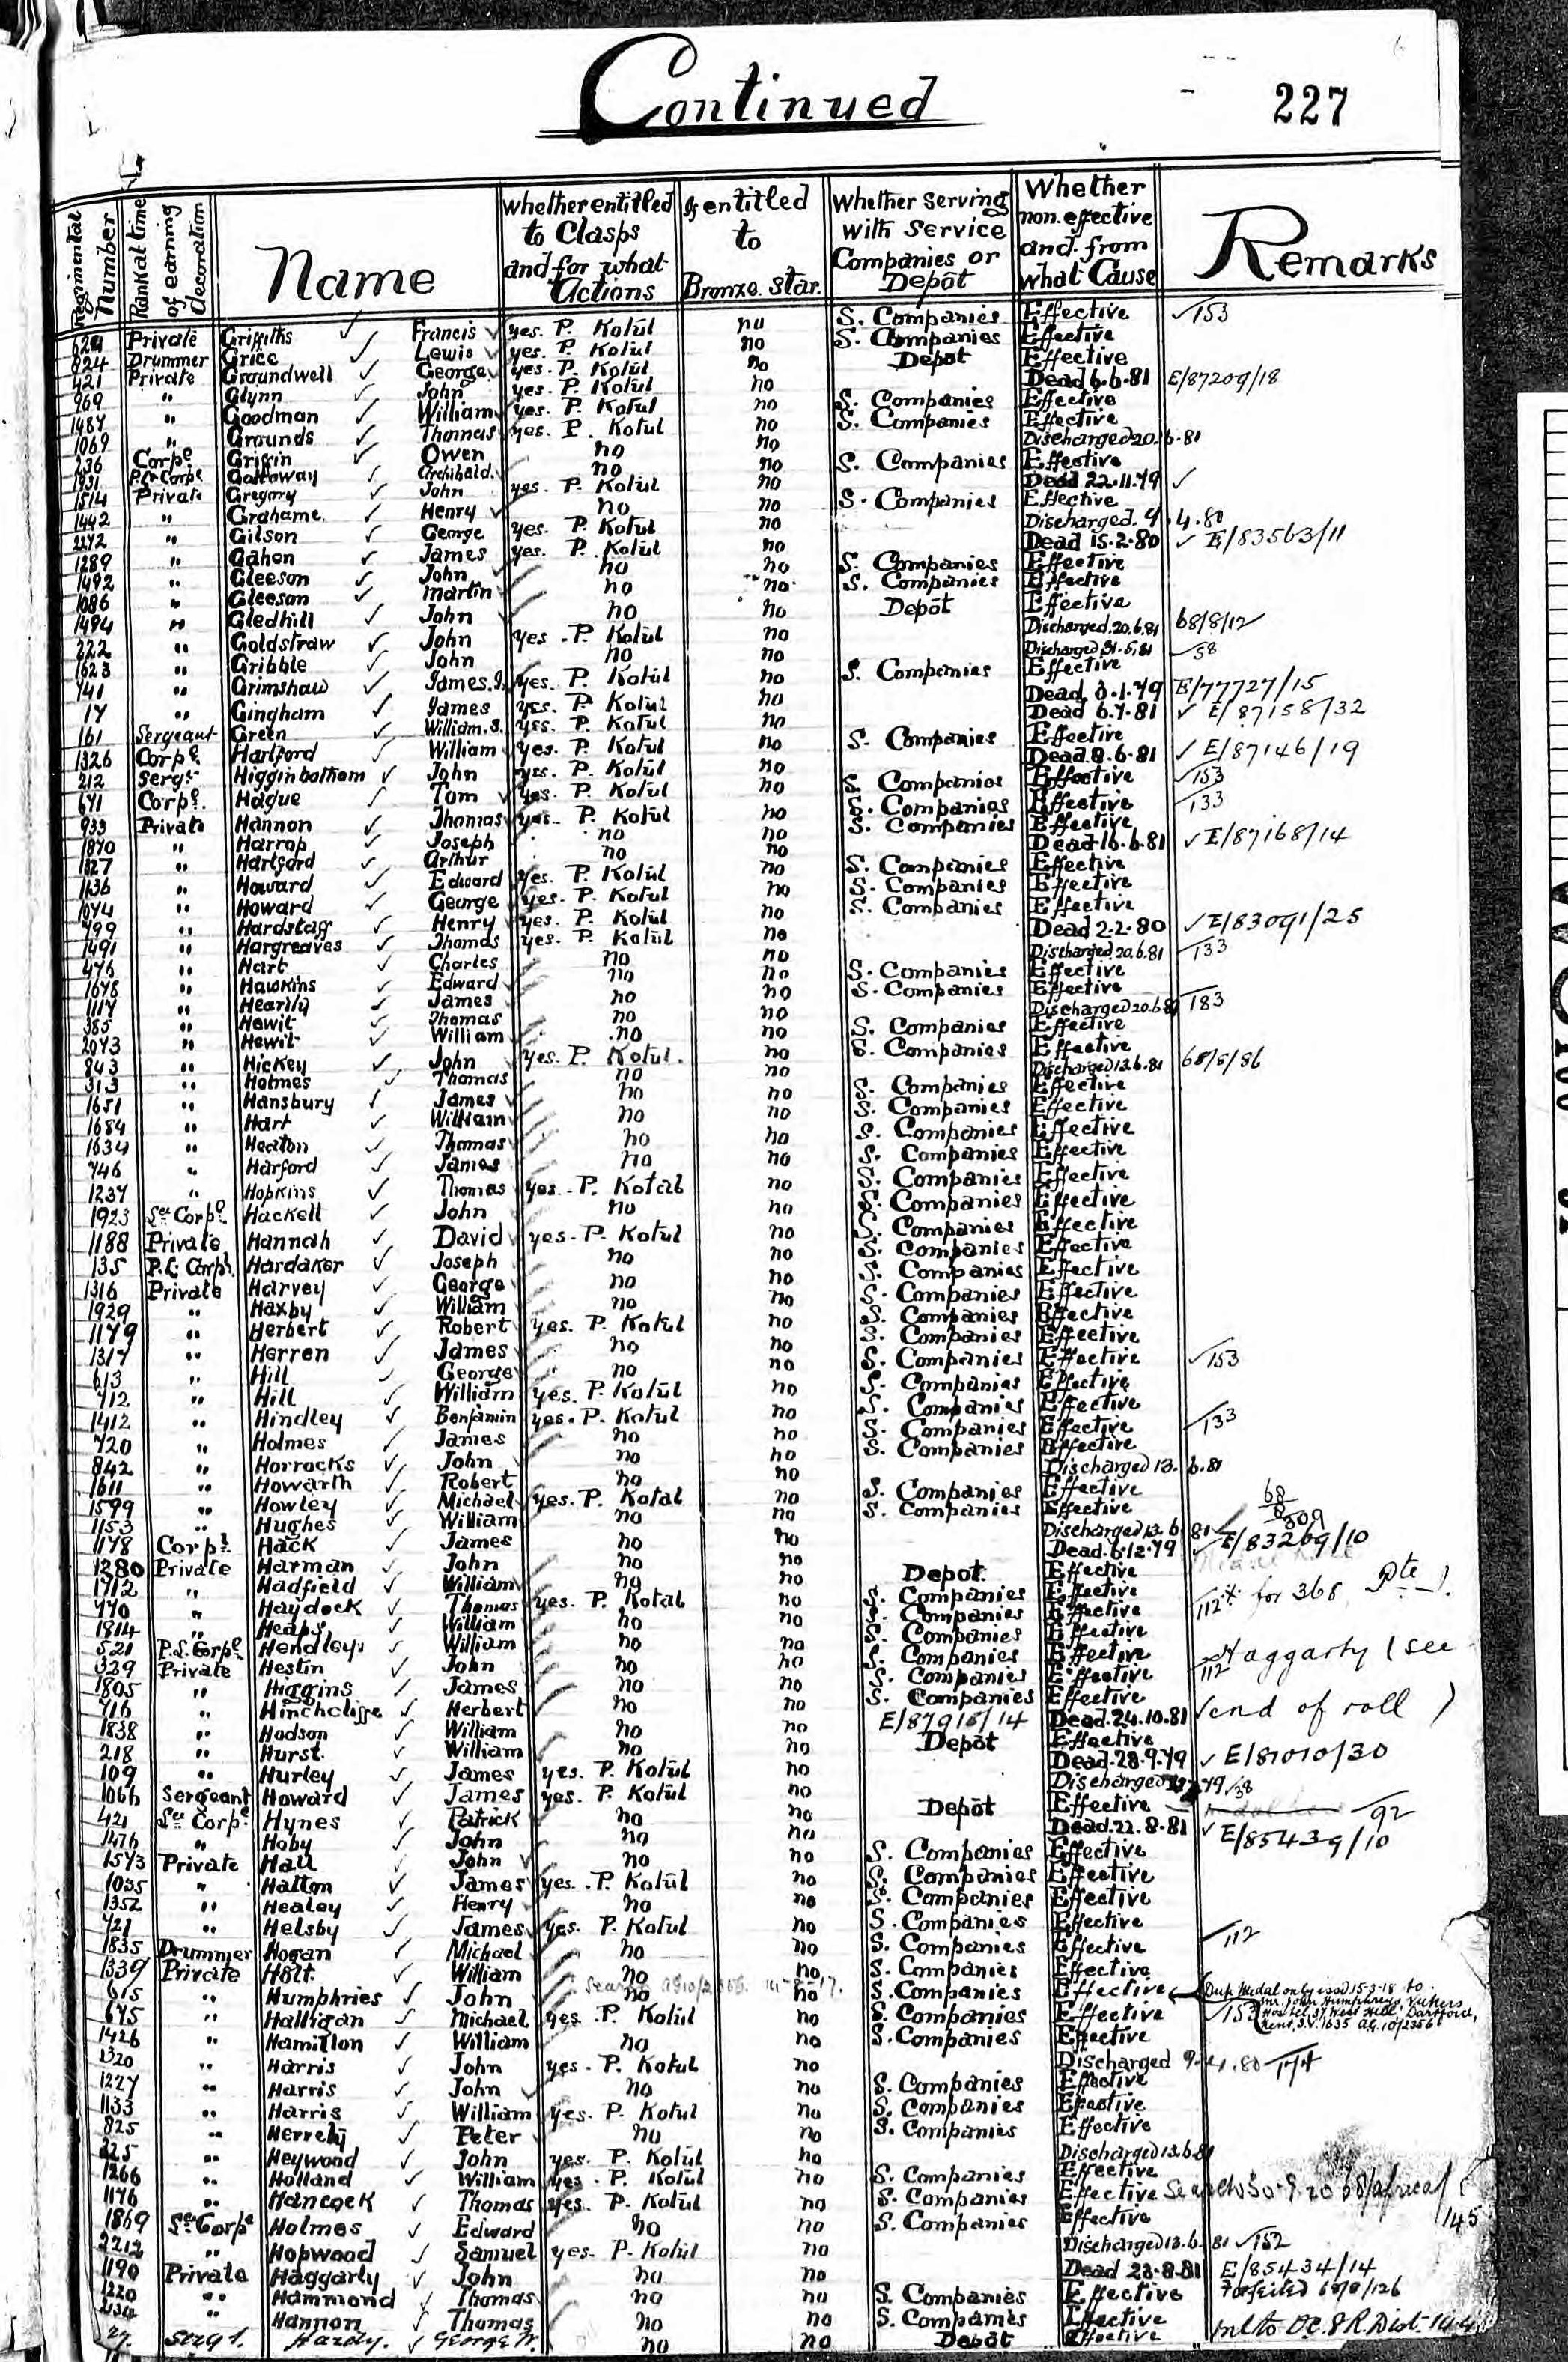 Continued
227
Regimental Number | Rank at time of earning decoration | Name | Whether entitled to Clasps and for what Actions | If entitled to Bronze Star. | Whether Serving with Service Companies or Depôt | Whether non. effective and from what Cause | Remarks
Private Griffiths Francis yes. P. Kotul no S. Companies Effective 153
824 Drummer Grice Lewis yes. P. Kotul no S. Companies Effective
421 Private Groundwell George yes. P. Kotul no Depôt Effective
969 " Glynn John yes. P. Kotul no Dead 6.6.81 E/87209/18
1487 " Goodman William yes. P. Kotul no S. Companies Effective
1069 " Grounds Thomas yes. P. Kotul no S. Companies Effective
236 Corpl Griffin Owen no no Discharged 20.6.81
1931 Galloway Archibald. no no S. Companies Effective
1514 Private Gregory John yes. P. Kotul no Dead 22.11.79
1442 " Grahame. Henry no no S. Companies Effective
" Gilson George yes. P. Kotul no Discharged. 4.80
1289 " Gahen James yes. P. Kotul no Dead 15.2.80 E/83563/11
1492 " Gleeson John no no S. Companies Effective
1086 " Gleeson Martin no no S. Companies Effective
1494 " Gledhill John no no Depôt Effective
222 " Goldstraw John yes. P. Kotul no Discharged. 20.6.81 68/8/12
1623 " Gribble John no no Discharged 31.5.81 58
741 " Grimshaw James. yes. P. Kotul no S. Companies Effective
17 " Gingham James yes. P. Kotul no Dead 3.1.79 E/77727/15
161 Sergeant Green William. S. yes. P. Kotul no Dead 6.7.81 E/87158/32
1326 Corpl Hartford William yes. P. Kotul no S. Companies Effective
212 Sergt Higginbotham John yes. P. Kotul no Dead. 8.6.81 E/87146/19
671 Corpl. Hague Tom yes. P. Kotul no S. Companies Effective 153
933 Private Hannon Thomas yes. P. Kotul no S. Companies Effective 133
1870 " Harrop Joseph no no S. Companies Effective
1827 " Hartford Arthur no no Dead 16.6.81 E/87168/14
1636 " Howard Edward yes. P. Kotul no S. Companies Effective
1074 " Howard George yes. P. Kotul no S. Companies Effective
799 " Hardstaff Henry yes. P. Kotul no S. Companies Effective
1491 " Hargreaves Thomas yes. P. Kotul no Dead 2.2.80 E/83091/25
476 " Hart Charles no no Discharged 20.6.81 133
1678 " Hawkins Edward no no S. Companies Effective
1117 " James no no S. Companies Effective
385 " Hewit Thomas no no Discharged 20.6.81 183
2073 " Hewit William no no S. Companies Effective
843 " Hickey John yes. P. Kotul. no S. Companies Effective
313 " Holmes Thomas no no Discharged 13.6.81 68/8/86
1651 " Hansbury James no no S. Companies Effective
1684 " Hart William no no S. Companies Effective
1634 " Heaton Thomas no no S. Companies Effective
746 " Harford James no no S. Companies Effective
1237 " Hopkins Thomas yes. P. Kotal no S. Companies Effective
1923 Hackell John no no S. Companies Effective
1188 Private Hannah David yes. P. Kotul no S. Companies Effective
135 Hardaker Joseph no no S. Companies Effective
1316 Private Harvey George no no S. Companies Effective
1929 " Haxby William no no S. Companies Effective
1179 " Herbert Robert yes. P. Kotul no S. Companies Effective
1317 " Herren James no no S. Companies Effective
613 " Hill George no no S. Companies Effective 153
712 " Hill William yes. P. Kotul no S. Companies Effective
1412 " Hindley Benjamin yes. P. Kotul no S. Companies Effective
720 " Holmes James no no S. Companies Effective 133
842 " Horrocks John no no S. Companies Effective
1611 " Howarth Robert no no Discharged 13.6.81
1599 " Howley Michael yes. P. Kotal no S. Companies Effective
1153 " Hughes William no no S. Companies Effective
1178 Corpl Hack James no no Discharged 13.6.81
1280 Private Harman John no no Dead. 6.12.79 E/83269/10
1712 " Hadfield William no no Depot. Effective
770 " Haydock Thomas yes. P. Kotal no S. Companies Effective 112 * for 368 Pte
1814 " Heaps William no no S. Companies Effective
521 Hendley William no no S. Companies Effective
329 Private Hestin John no no S. Companies Effective Haggarty (see
1805 " Higgins James no no S. Companies Effective 112
716 " Hinchcliffe Herbert no no S. Companies Effective (end of roll)
1838 " Hodson William no no E/87918/14 Dead. 24.10.81
218 " Hurst. William no no Depôt Effective
109 " Hurley James yes. P. Kotul no Dead. 28.9.79 E/81010/30
1066 Sergeant Howard James yes. P. Kotul no Discharged
421 Hynes Patrick no no Depôt Effective 92
1476 " Hoby John no no Dead. 22.8.81 E/85439/10
1573 Private Hall John no no S. Companies Effective
1035 " Halton James yes. P. Kotul no S. Companies Effective
1352 " Healey Henry no no S. Companies Effective
721 " Helsby James yes. P. Kotul no S. Companies Effective
1835 Drummer Hogan Michael no no S. Companies Effective 112
1339 Private Holt. William no no S. Companies Effective
615 " Humphries John no no S. Companies Effective Dup Medal only issd 15-3-18 to Mr. John Humphries, Vickers Hostel, 37 West Hill, Dartford, Kent, S.V. 1635 AG. 10/2356
675 " Halligan Michael yes. P. Kotul no S. Companies Effective 153
1426 " Hamilton William no no S. Companies Effective
1320 " Harris John yes. P. Kotul no Discharged 9.4.80 174
1227 " Harris John no no S. Companies Effective
1133 " Harris William yes. P. Kotul no S. Companies Effective
825 " Peter no no S. Companies Effective
" Heywood John yes. P. Kotul no Discharged 13.6.81
1266 " Holland William yes. P. Kotul no S. Companies Effective
1176 " Hancock Thomas yes. P. Kotul no S. Companies Effective 145
1869 Holmes Edward no no S. Companies Effective
2212 " Hopwood Samuel yes. P. Kotul no Discharged 13.6.81 152
1190 Private Haggarty John no no Dead 23.8.81 E/85434/14
1220 " Hammond Thomas no no S. Companies Effective Forfeited 68/8/126
" Hannon Thomas no no S. Companies Effective
27. Sergt. Hardy. George W. no no Depôt Effective